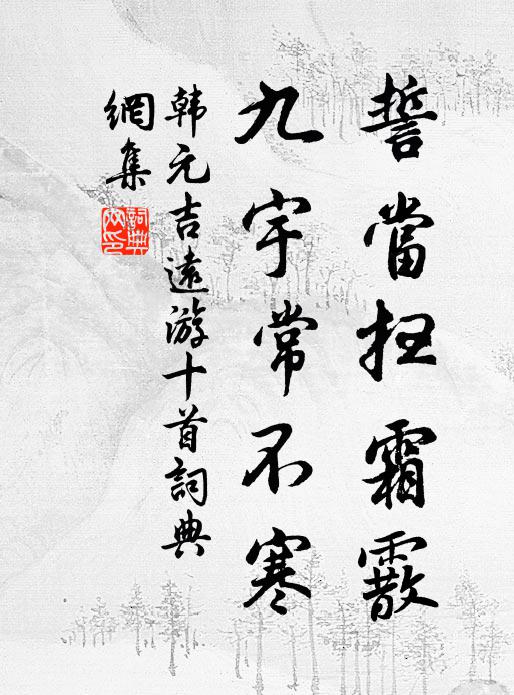 誓當扫霜霰
九宇常不寒
韩元吉遠游十首詞典
網集
詞典
网印